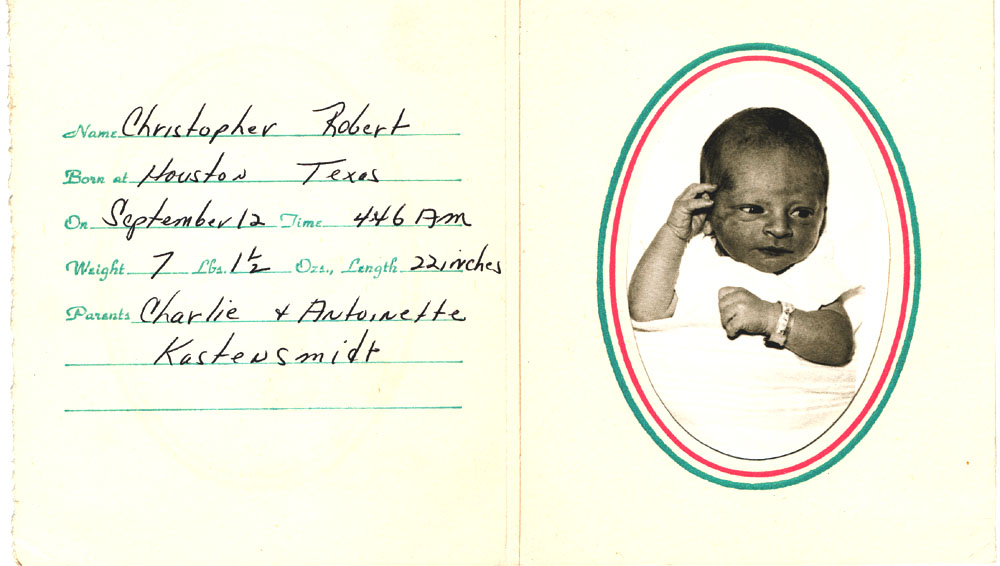 Name Christopher Robert
Born at Houston Texas
On September 12 Time 446 AM
Weight 7 Lbs. 1 1/2 Ozs., Length 22 inches
Parents Charlie & Antoinette
Kastensmidt